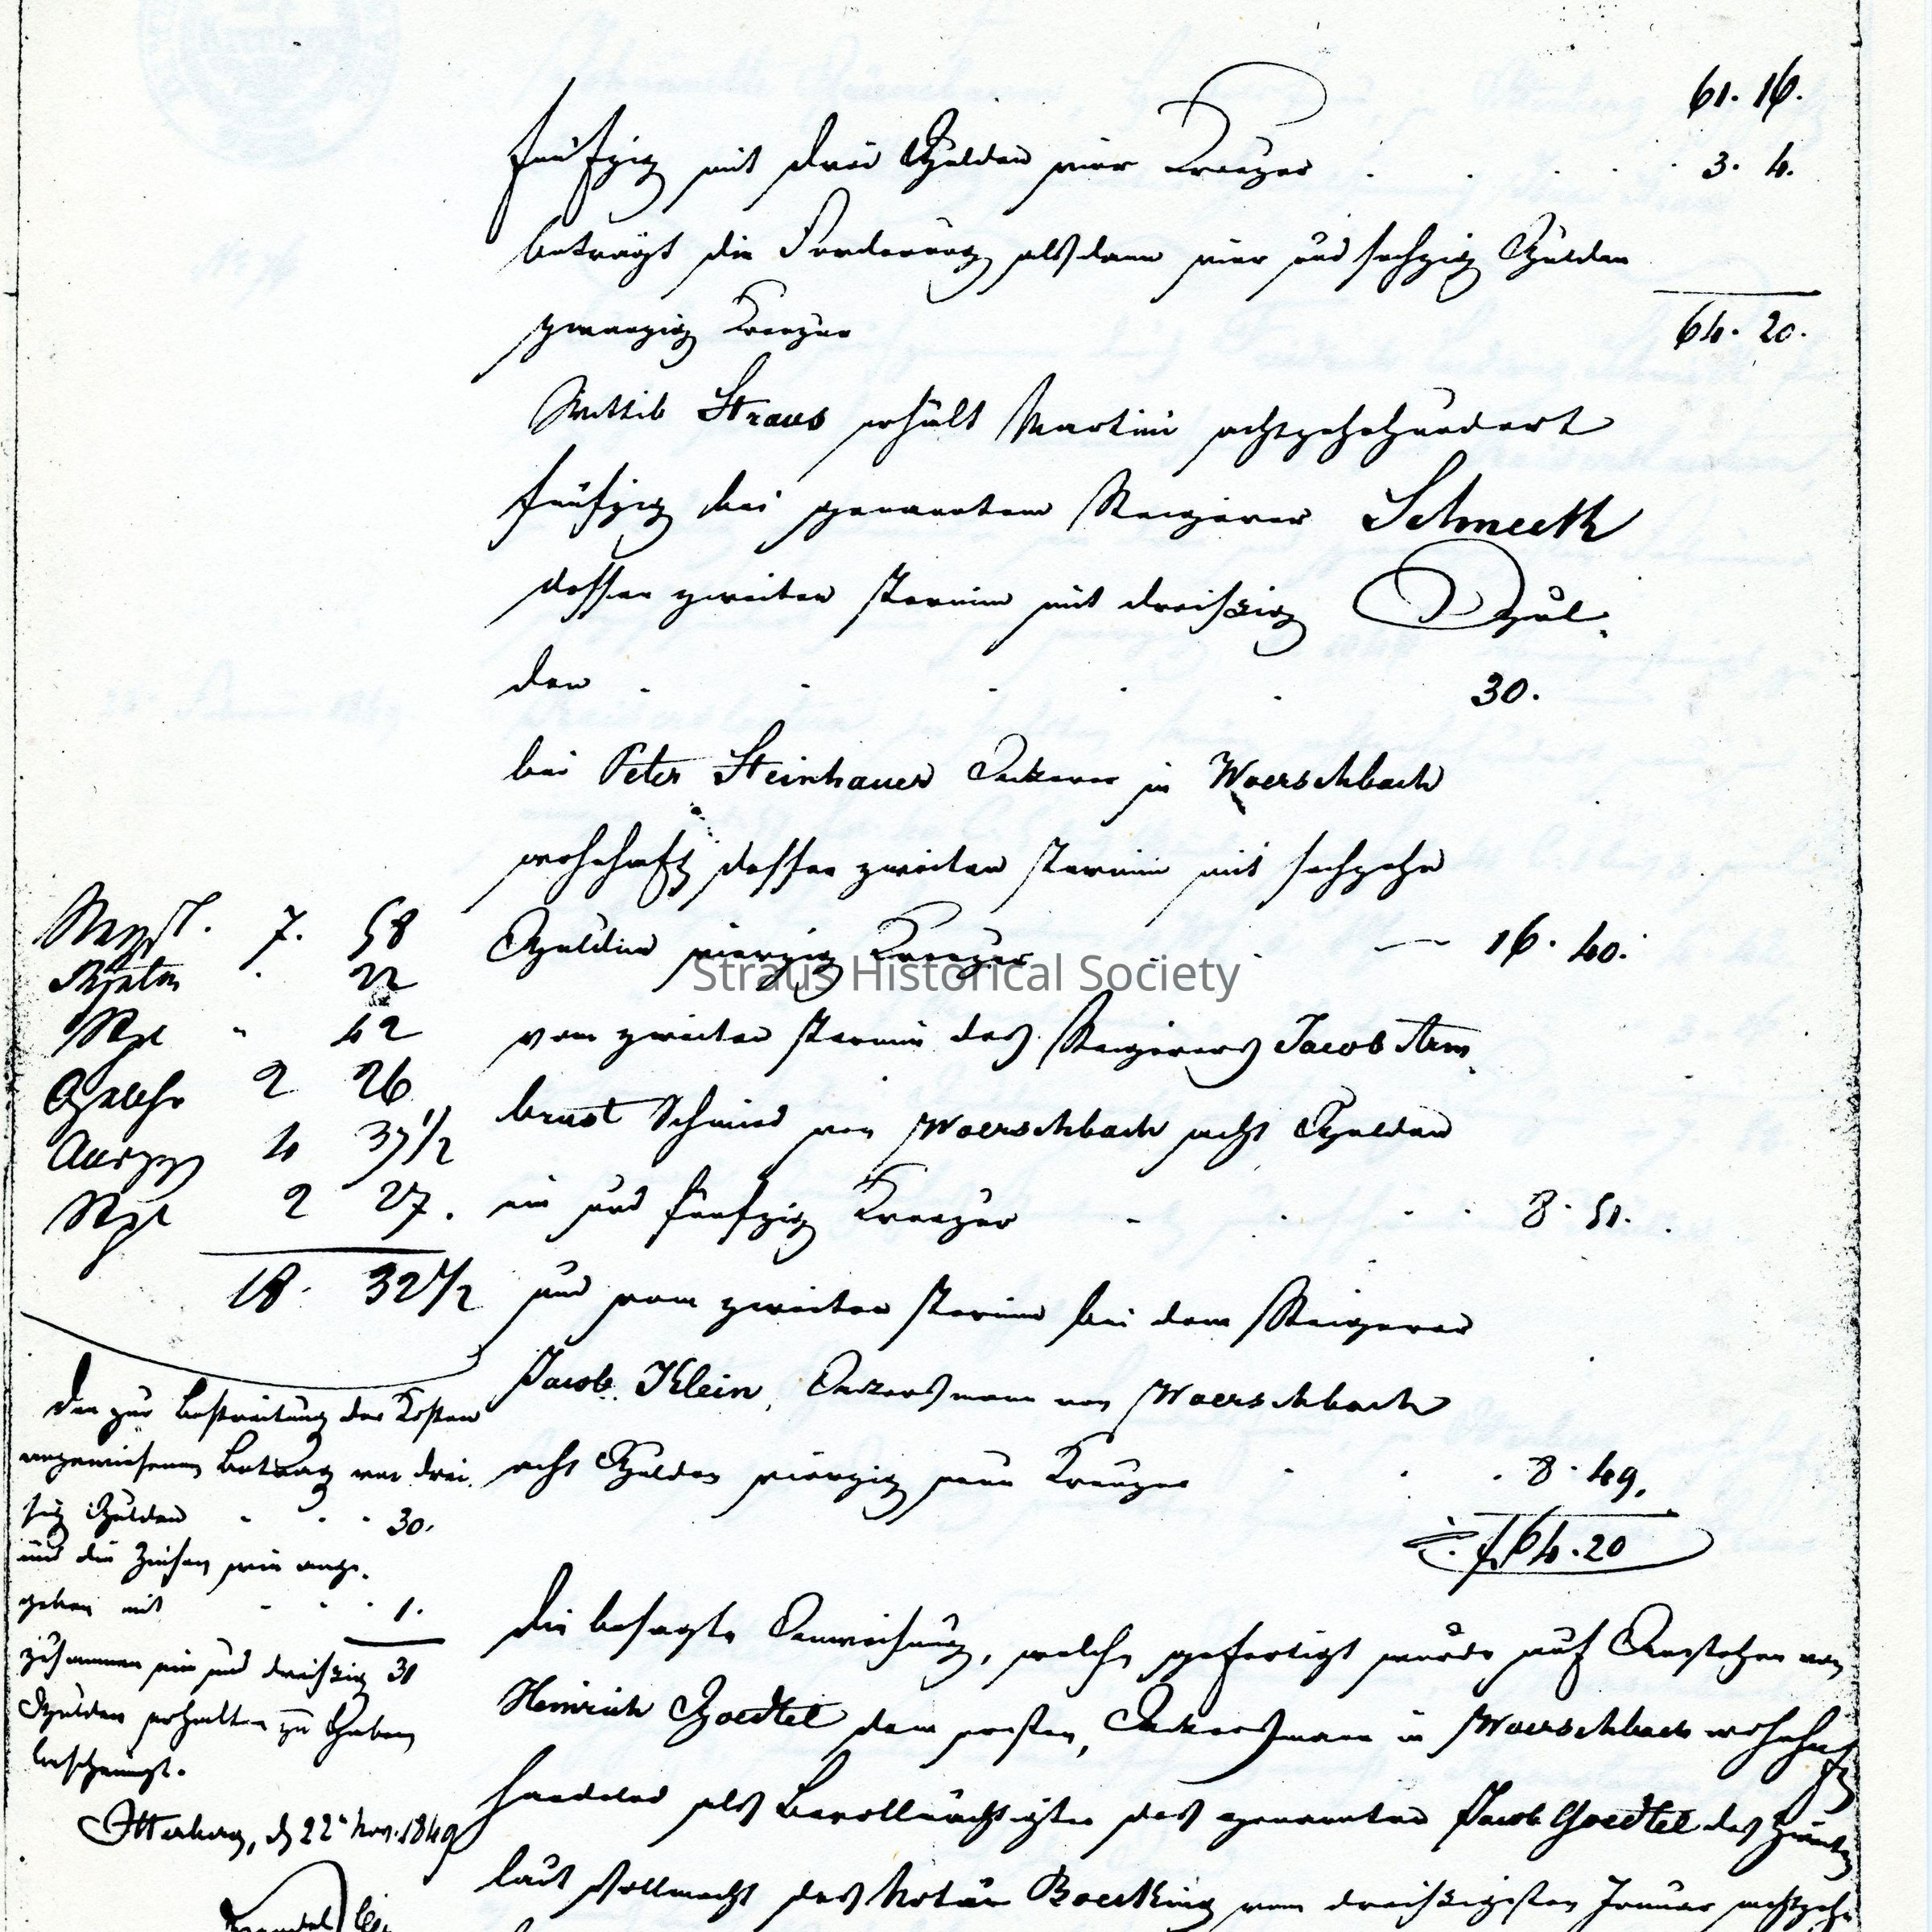 61. 16.
fünfzig mit drei Gulden vier Kreuzer . . . . . 3. 4.
beträgt die Forderung alsdann vier und sechzig Gulden
zwanzig Kreuzer 64. 20.
Wittib Straus erhält Martini achtzehnhundert
fünfzig bei genanntem Steigerer Schmeck
dessen zweiten Termin mit dreißig Gul-
den . . . . . 30.
bei Peter Steinhauer Ackerer in Woerschbach
wohnhaft dessen zweiten Termin mit sechzehn
Gulden vierzig Kreuzer . . — 16. 40.
vom zweiten Termin des Steigerers Jacob Arm-
brust Schmied von Woerschbach acht Gulden
ein und fünfzig Kreuzer - . . . 8. 51.
und vom zweiten Termin bei dem Steigerer
Jacob Klein, Ackersmann von Woerschbach
acht Gulden vierzig neun Kreuzer . . . 8. 49.
f. 64. 20
Die besagte Anweisung, welche gefertigt wurde auf Anstehen von
Heinrich Goedtel dem ersten, Ackersmann in Woerschbach wohnhaft
handelnd als Bevollmächtigter des genannten Jacob Goedtel des Zweiten
laut Vollmacht des Notär Boecking vom dreißigsten Januar achtzehn
Regst. 7. 58
22
Stpl " 42
Gebhr 2 26
Auszg 4 37 1/2
Stpl 2 27.
18. 32 1/2
Den zur Bestreitung der Kosten
angewiesenen Betrag von drei-
ßig Gulden - . . 30.
und die Zinsen wie ange-
geben mit - . . 1.
zusammen ein und dreißig 31
Gulden erhalten zu haben
bescheinigt.
Otterberg, d 22n Nov. 1849
Straus Historical Society